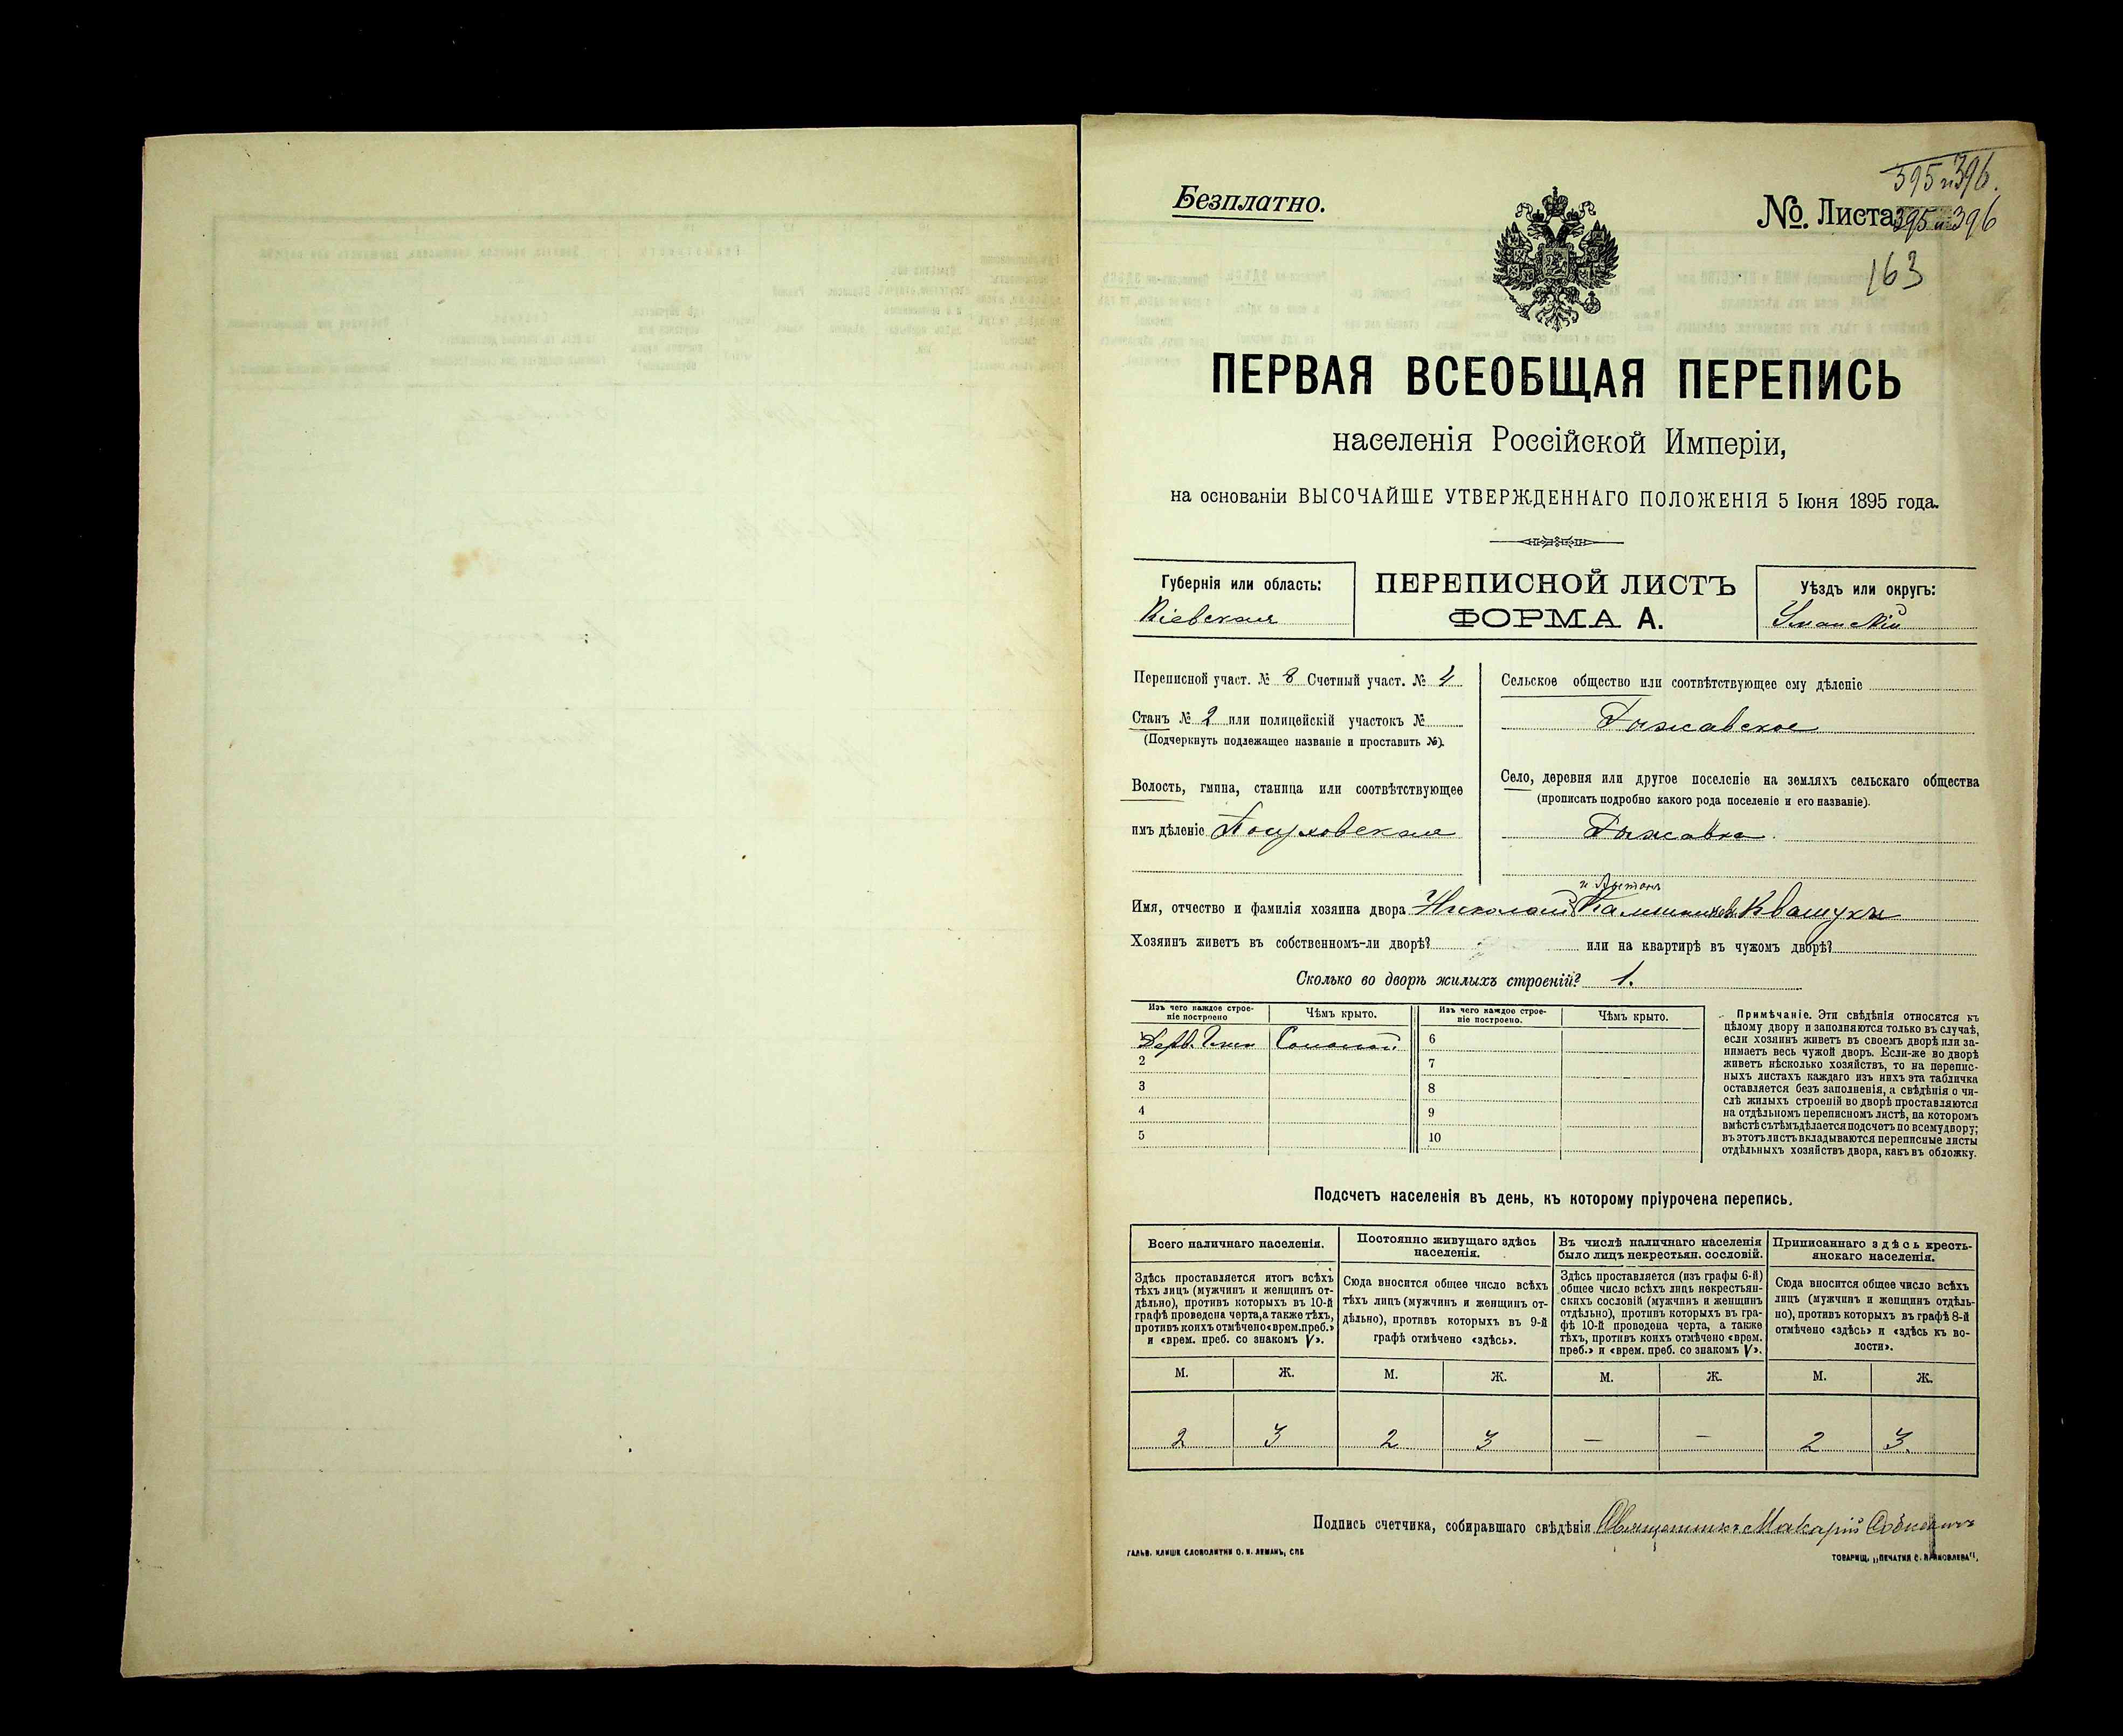 395 и 396.
Безплатно.
№. Листа 395 и 396
163
ПЕРВАЯ ВСЕОБЩАЯ ПЕРЕПИСЬ
населенія Россійской Имперіи,
на основаніи ВЫСОЧАЙШЕ УТВЕРЖДЕННАГО ПОЛОЖЕНІЯ 5 Іюня 1895 года.
Губернія или область:
Кіевская
ПЕРЕПИСНОЙ ЛИСТЪ
ФОРМА А.
Уѣздъ или округъ:
Уманскій
Переписной участ. № 8 Счетный участ. № 4
Станъ № 2 или полицейскій участокъ №
(Подчеркнуть подлежащее названіе и проставить №).
Волость, гмина, станица или соотвѣтствующее
имъ дѣленіе
Сельское общество или соотвѣтствующее ему дѣленіе
Рыжавское
Село, деревня или другое поселеніе на земляхъ сельскаго общества
(прописать подробно какого рода поселеніе и его названіе).
Рыжавка.
и Антонъ
Имя, отчество и фамилія хозяина двора Николай Квашукъ
Хозяинъ живетъ въ собственномъ-ли дворѣ? или на квартирѣ въ чужомъ дворѣ?
Сколько во дворѣ жилыхъ строеній? 1.
Изъ чего каждое строе-
ніе построено
Чѣмъ крыто.
Изъ чего каждое строе-
ніе построено.
Чѣмъ крыто.
1 Дерев. Соломой 6
2 7
3 8
4 9
5 10
Примѣчаніе. Эти свѣдѣнія относятся къ
цѣлому двору и заполняются только въ случаѣ,
если хозяинъ живетъ въ своемъ дворѣ или за-
нимаетъ весь чужой дворъ. Если-же во дворѣ
живетъ нѣсколько хозяйствъ, то на перепис-
ныхъ листахъ каждаго изъ нихъ эта табличка
оставляется безъ заполненія, а свѣдѣнія о чи-
слѣ жилыхъ строеній во дворѣ проставляются
на отдѣльномъ переписномъ листѣ, на которомъ
вмѣстѣ съ тѣмъ дѣлается подсчетъ по всему двору;
въ этотъ листъ вкладываются переписные листы
отдѣльныхъ хозяйствъ двора, какъ въ обложку.
Подсчетъ населенія въ день, къ которому пріурочена перепись.
Всего наличнаго населенія.
Здѣсь проставляется итогъ всѣхъ
тѣхъ лицъ (мужчинъ и женщинъ от-
дѣльно), противъ которыхъ въ 10-й
графѣ проведена черта, а также тѣхъ,
противъ коихъ отмѣчено «врем. преб.»
и «врем. преб. со знакомъ V».
Постоянно живущаго здѣсь
населенія.
Сюда вносится общее число всѣхъ
тѣхъ лицъ (мужчинъ и женщинъ от-
дѣльно), противъ которыхъ въ 9-й
графѣ отмѣчено «здѣсь».
Въ числѣ наличнаго населенія
было лицъ некрестьян. сословій.
Здѣсь проставляется (изъ графы 6-й)
общее число всѣхъ лицъ некрестьян-
скихъ сословій (мужчинъ и женщинъ
отдѣльно), противъ которыхъ въ гра-
фѣ 10-й проведена черта, а также
тѣхъ, противъ коихъ отмѣчено «врем.
преб.» и «врем. преб. со знакомъ V».
Приписаннаго здѣсь кресть-
янскаго населенія.
Сюда вносится общее число всѣхъ
лицъ (мужчинъ и женщинъ отдѣль-
но), противъ которыхъ въ графѣ 8-й
отмѣчено «здѣсь» и «здѣсь къ во-
лости».
М. Ж. М. Ж. М. Ж. М. Ж.
2 3 2 3 — — 2 3.
Подпись счетчика, собиравшаго свѣдѣнія Священникъ Макарій
ГАЛЬВ. КЛИШЕ СЛОВОЛИТНИ О. И. ЛЕМАНЪ, СПБ
ТОВАРИЩ. „ПЕЧАТНЯ С. П. ЯКОВЛЕВА".